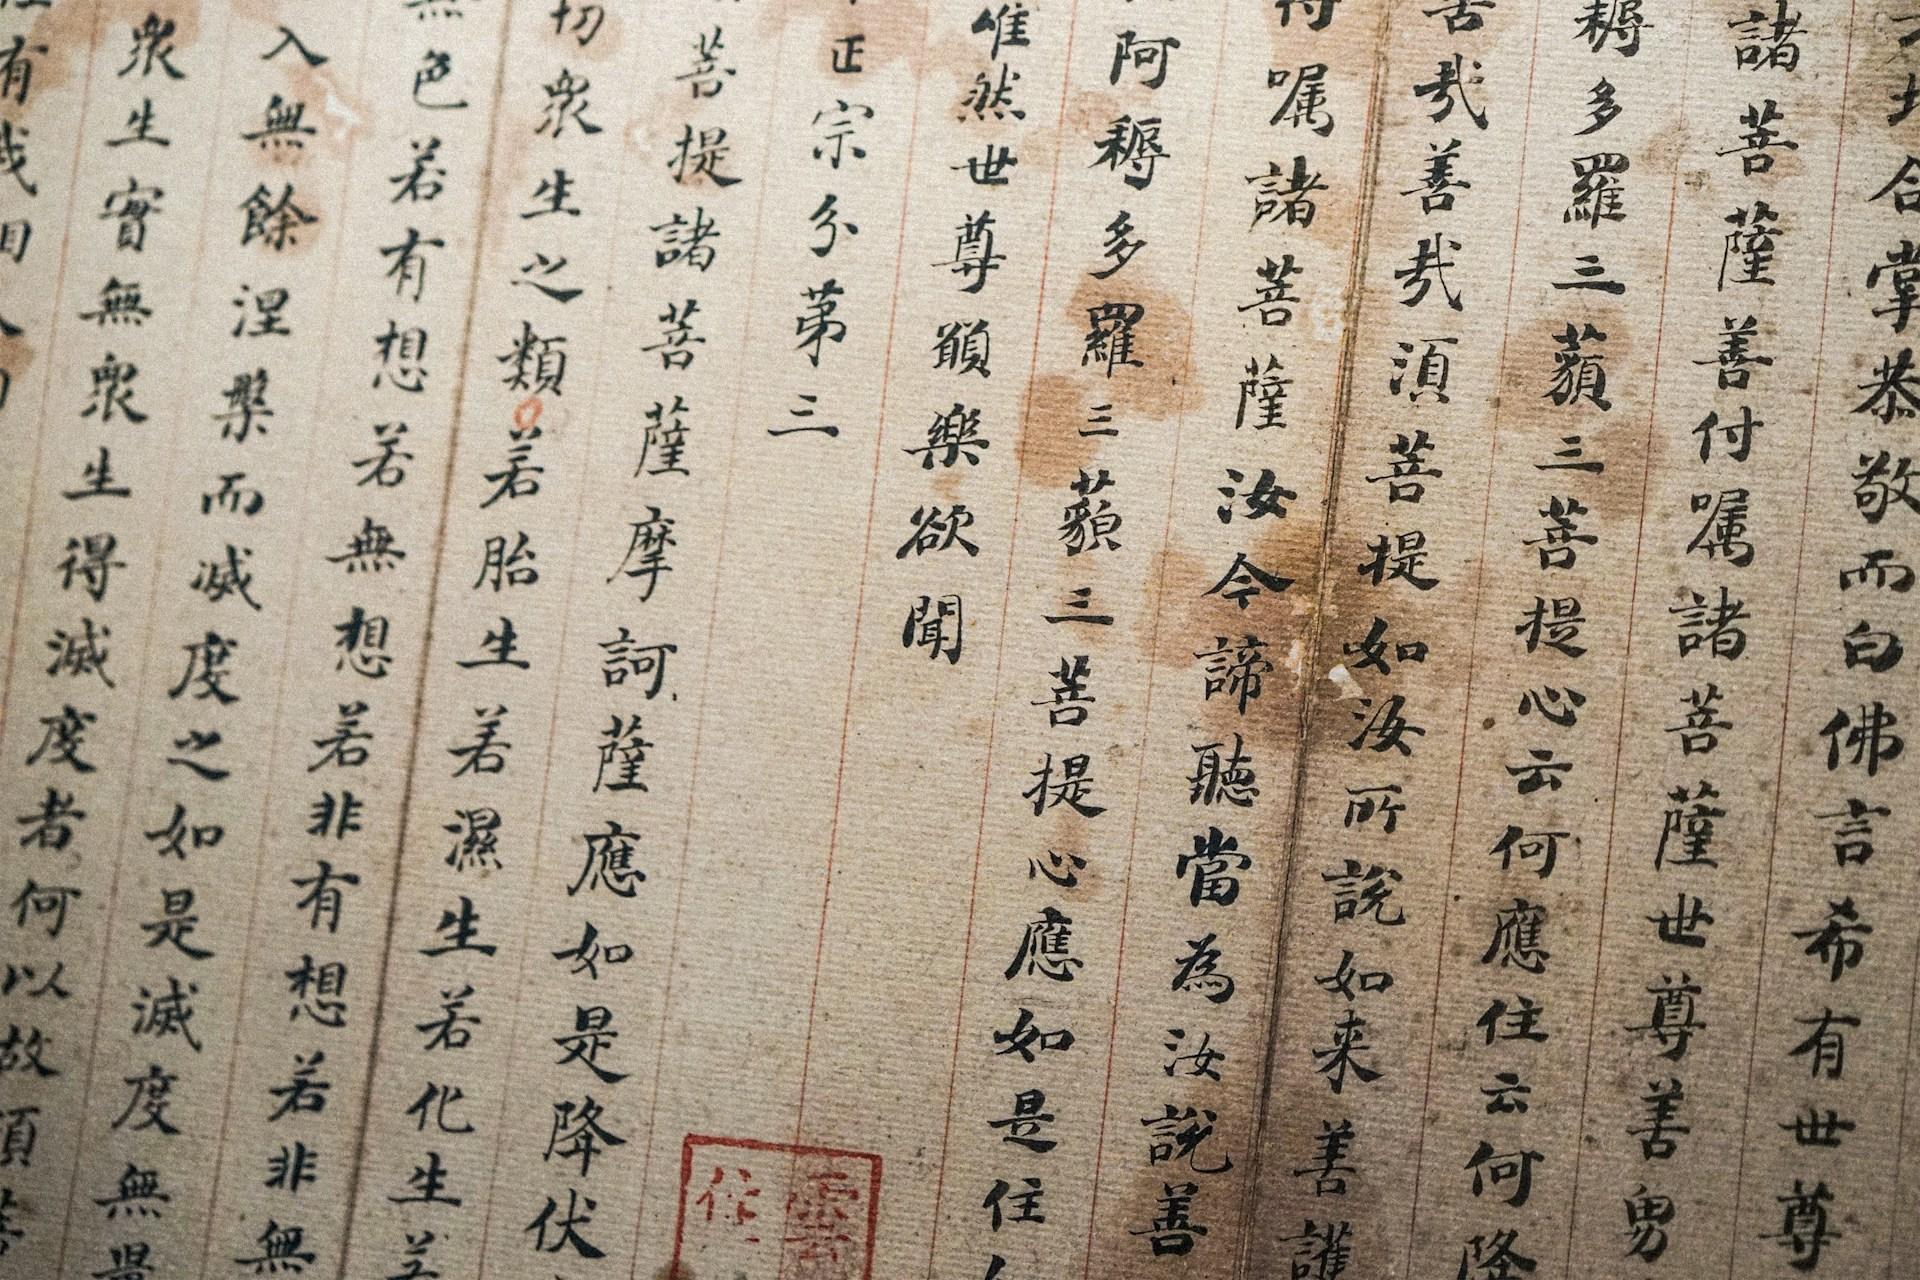 合掌恭敬而白佛言希有世尊
諸菩薩善付囑諸菩薩世尊善男
耨多羅三藐三菩提心云何應住云何降
哉善哉須菩提如汝所說如来善護
囑諸菩薩汝今諦聽當為汝說善
阿耨多羅三藐三菩提心應如是住
唯然世尊願樂欲聞
正宗分苐三
菩提諸菩薩摩訶薩應如是降伏
切衆生之類若胎生若濕生若化生若
色若有想若無想若非有想若非無
入無餘涅槃而滅度之如是滅度無
衆生實無衆生得滅度者何以故須菩
有我
雲
住